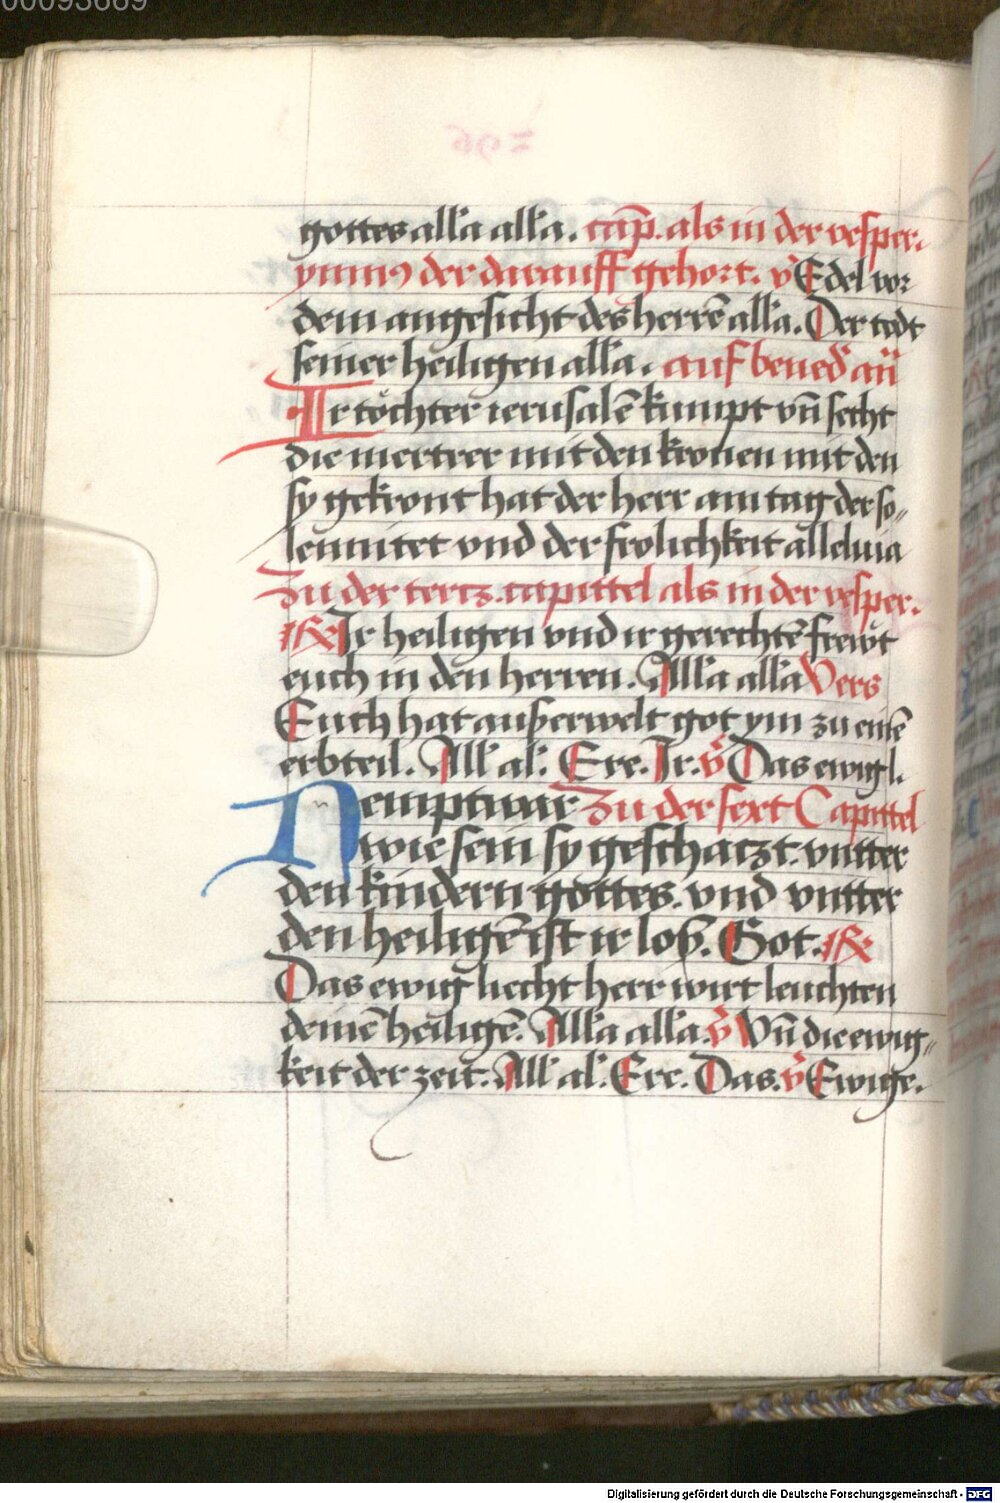 00093669
gottes alĺa alĺa. cap̄. als in der vesper.
ymn9 der darauff gehort. v̄ Edel vor
dem angesicht des herrē alĺa. Der todt
seiner heiligen alĺa. auf bened̄ an̄
Ir töchter ierusalē kumpt vn̄ secht
die mertrer mit den kronen mit den
sy gekront hat der herr am tag der so„
lennitet vnd der frolichkeit alleluia
Zu der tertz. capittel als in der vesper.
℟ Ir heiligen vnd ir gerechtē frewt
euch in den herren. Alĺa alĺa Vers
Euch hat auserwelt got ym zu einē
erbteil. All̄ al̄. Ere. Ir. v̄ Das ewig l.
Nempt war Zu der sext Capittel
wie sein sy geschaczt. vntter
den kindern gottes. vnd vntter
den heiligē ist ir loß. Got. ℟
Das ewig liecht herr wirt leuchten
deinē heiligē. Alĺa alĺa. v̄ Vn̄ die ewig„
keit der zeit. All̄ al̄. Ere. Das. v̄ Ewige.
Digitalisierung gefördert durch die Deutsche Forschungsgemeinschaft - DFG